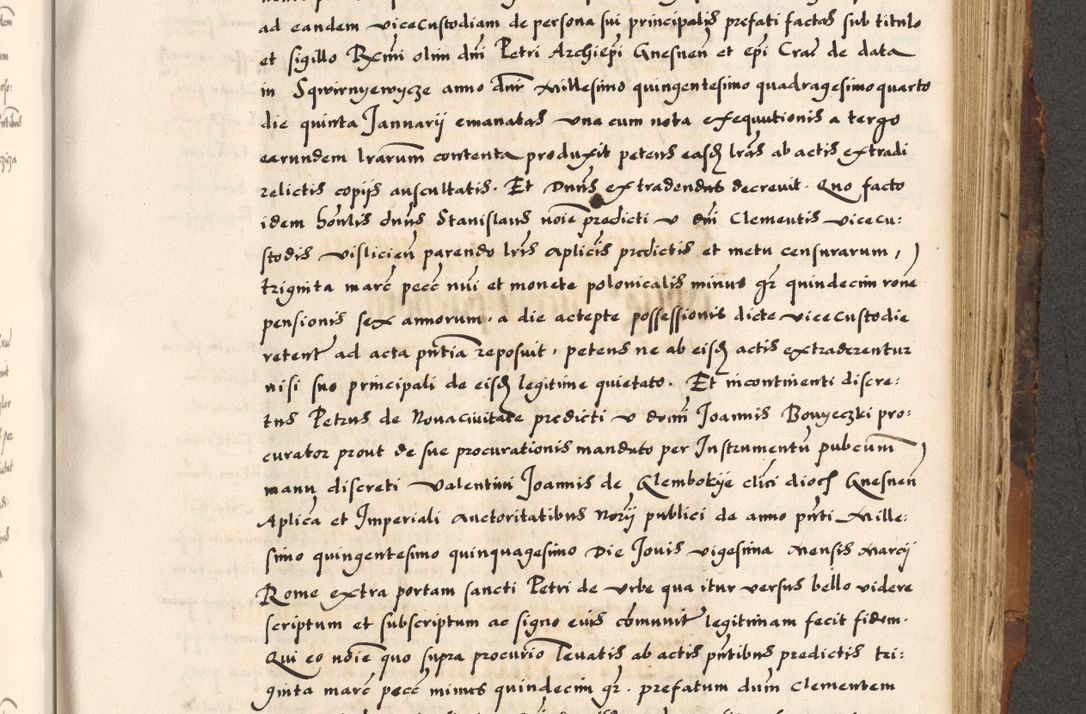 ad eandem vicecustodiam de persona sui principalis prefati factas sub titulo
et sigillo Rcmi olim dni Petri Archiepi Gnesnen et epi Crac de data
in Sqwirnyewycze anno dni Millesimo quingentesimo quadragesimo quarto
die quinta Jannarij emanatas vna cum nota exequutionis a tergo
earundem lrarum contenta produxit petens easdem lras ab actis extradi
relictis copijs auscultatis. Et Duns extradendas decreuit. Quo facto
idem honlis duns Stanislaus noie predicti v dni Clementis vicecu:
stodis visliciен parendo lris aplicis predictis et metu censurarum,
triginta marc pecc nui et monete polonicalis minus gr quindecim rone
pensionis sex annorum, a die adepte possessionis dicte vicecustodie
retent ad acta pntia reposuit, petens ne ab eisdem actis extraderentur
nisi suo principali de eisdem legitime quietato. Et incontinenti discre:
tus Petrus de Nouaciuitate predicti v domi Joannis Bonyeczki pro:
curator prout de sue procurationis mandato per Instrumentu pubcum
manu discreti Valentini Joannis de Glembokye clici dioc Gnesnen
Aplica et Imperiali auctoritatibus Norij publici de anno pnti Mille:
simo quingentesimo quinquagesimo Die Jouis vigesima mensis Marcij
Rome extra portam sancti Petri de vrbe qua itur versus bello videre
scriptum et subscriptum ac signo eius comunit legitimam fecit fidem.
Qui eo noie quo supra procurio leuatis ab actis pntibus predictis tri:
ginta marc pecc minus quindecim gr. prefatum dum Clementem